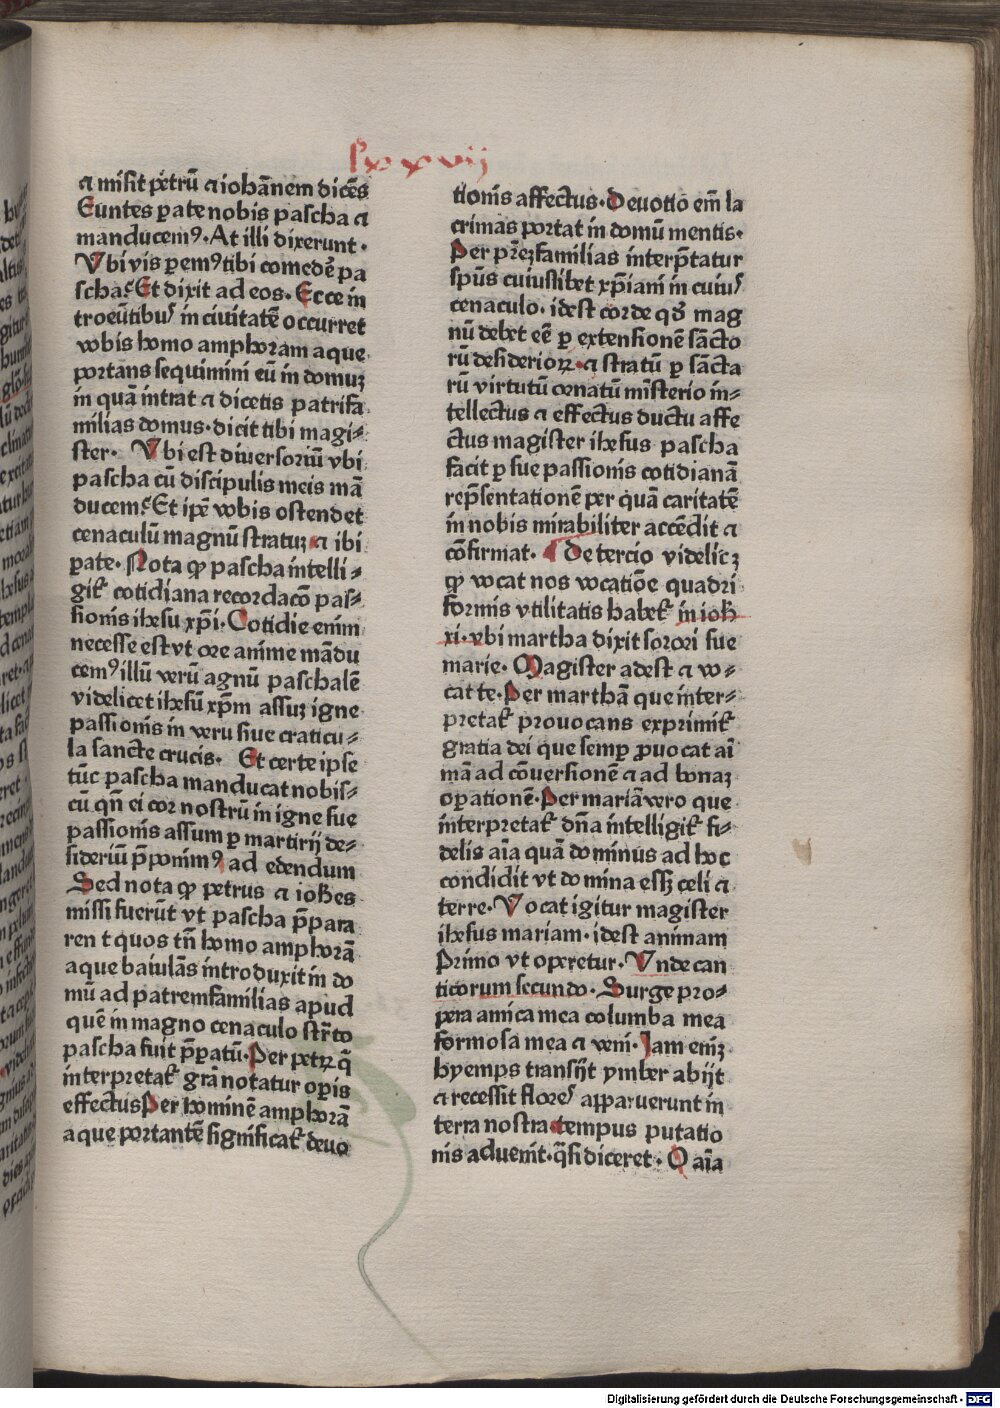 lxxxvij
⁊ misit petrū ⁊ iohānem dicēs
Euntes ꝑate nobis pascha ⁊
manducemꝰ. At illi dixerunt.
Vbi vis ꝑemꝰ tibi comedē̄ pa
scha? Et dixit ad eos. Ecce in
troeūtibus in ciuitatē occurret
vobis homo amphoram aque
portans sequimini eū in domuꝫ
in quā intrat ⁊ dicetis patrifa
milias domus. dicit tibi magi⸗
ster. Vbi est diuersoriū vbi
pascha cū discipulis meis mā
ducem? Et ipē vobis ostendet
cenaculū magnū stratuꝫ ⁊ ibi
ꝑate. Nota ꝙ pascha intelli⸗
git᷑ cotidiana recordacō pas⸗
sionis ihesu xp̄i. Cotidie enim
necesse est vt ore anime mādu
cemꝰ illū verū agnū paschalē
videlicet ihesū xp̄m assuꝫ igne
passionis in veru siue craticu⸗
la sancte crucis. Et certe ipse
tūc pascha manducat nobis⸗
cū qn̄ ei cor nostrū in igne sue
passionis assum ꝑ martirij de⸗
siderium p̄ponimꝰ ad edendum
Sed nota ꝙ petrus ⁊ ioħes
missi fuerūt vt pascha p̄para
ren t quos tn̄ homo amphorā
aque baiulās introduxit in do
mū ad patremfamilias apud
quē in magno cenaculo str̄to
pascha fuit p̄ꝑatū. Per petꝝ q̄
interpretat᷑ grā notatur oꝑis
effectus Per hominē amphorā
aque portantē significat᷑ deuo
tionis affectus. Deuotio em̄ la
crimas portat in domū mentis.
Per pr̄ezfamilias interp̄tatur
sp̄us cuiuslibet xp̄iani in cuius
cenaculo. idest corde qd̄ mag
nū debet eē ꝑ extensionē sācto
rū desiderioꝝ. ⁊ stratū ꝑ sācta
rū virtutū cenatū misterio in⸗
tellectus ⁊ effectus ductu affe
ctus magister ihesus pascha
facit ꝑ sue passionis cotidianā
rep̄sentationē per quā caritatē
in nobis mirabiliter accēdit ⁊
cōfirmat. De tercio videlicꝫ
ꝙ vocat nos vocatiōe quadri
formis vtilitatis habet᷑ in ioħ
xi. vbi martha dixit sorori sue
marie. Magister adest ⁊ vo⸗
cat te. Per marthā que inter⸗
pretat᷑ prouocans exprimit᷑
gratia dei que semꝑ ꝓuocat ai
mā ad cōuersionē ⁊ ad bonaꝫ
oꝑationē. Per mariā vero que
interpretat᷑ dn̄a intelligit᷑ fi⸗
delis aīa quā dominus ad hoc
condidit vt domina essꝫ celi ⁊
terre. Vocat igitur magister
ihesus mariam. idest animam
Primo vt operetur. Vnde can
ticorum secundo. Surge pro⸗
pera amica mea columba mea
formosa mea ⁊ veni. Jam enīꝫ
hyemps transijt ymber abijt
⁊ recessit flores apparuerunt in
terra nostra tempus putatio
nis aduenit. q̄si diceret. O aīa
Digitalisierung gefördert durch die Deutsche Forschungsgemeinschaft - DFG